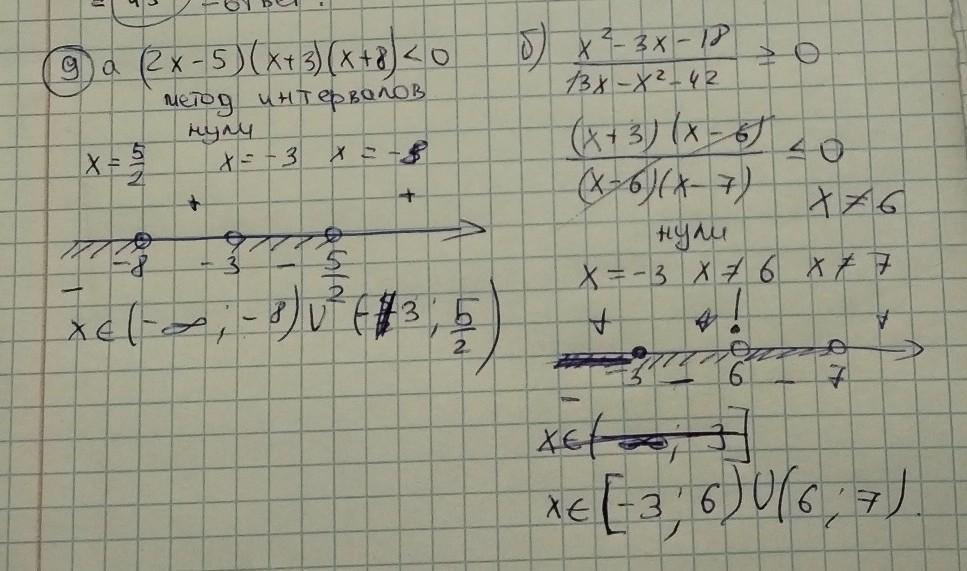 9 а (2x-5)(x+3)(x+8)<0
метод интервалов
нули
x = 5/2 x = -3 x = -8
+ +
-8 -3 - 5/2
-
x∈(-∞; -8)∪(-3; 5/2)
б) (x²-3x-18)/(13x-x²-42) ≥ 0
((x+3)(x-6))/((x-6)(x-7)) ≤ 0
x≠6
нули
x = -3 x≠6 x≠7
+ ! +
-3 - 6 - 7
-
x∈(-∞; 3]
x∈[-3; 6)∪(6; 7).